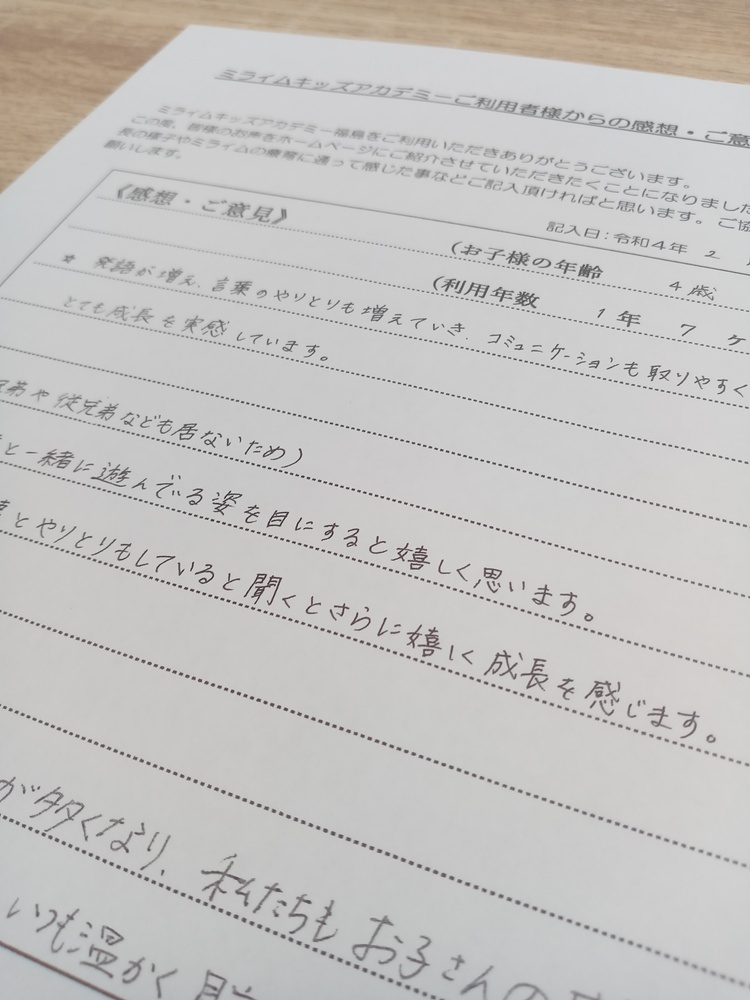 ミライムキッズアカデミーご利用者様からの感想・ご意
ミライムキッズアカデミー福島をご利用いただきありがとうございます。
この度、皆様のお声をホームページにご紹介させていただきたくことになりました
長の様子やミライムの療育に通って感じた事などご記入頂ければと思います。ご協
願いします。
記入日:令和4年 2
《感想・ご意見》 (お子様の年齢 4歳
(利用年数 1年 7ヶ
* 発語が増え、言葉のやりとりも増えていき、コミュニケーションも取りやすく
とても成長を実感しています。
兄弟や従兄弟なども居ないため)
と一緒に遊んでいる姿を目にすると嬉しく思います。
とやりとりもしていると聞くとさらに嬉しく成長を感じます。
が多くなり、私たちもお子さんの
いつも温かく